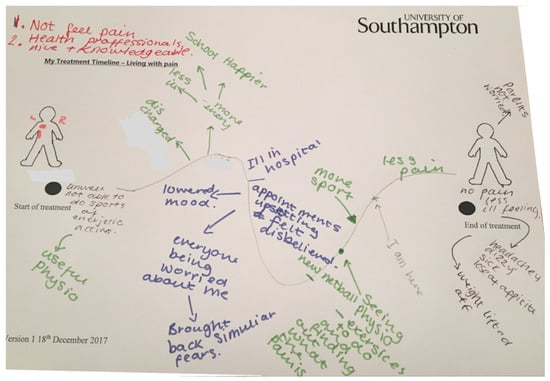 1. Not feel pain
2. Health proffessionals
nice + Knowledgeable.
UNIVERSITY OF
Southampton
My Treatment Timeline – Living with pain
School Happier
less
more
energy
dis
charged
L
R
unwell
not able to
do sports
or
energetic
Start of treatment
useful
physio
Ill in
hospital
lowered
mood.
appointments
upsetting
+ felt
disbelieved.
everyone
being
worried
about me
Brought
back simuliar
fears.
more
sport
less
pain
new netball
I am here
Seeing
physio
exercises
to do
what
pain is
Parents
not
worried
no pain
less
ill feeling.
End of treatment
headaches
dizzy
sick
weight lifted
off
Version 1 18th December 2017